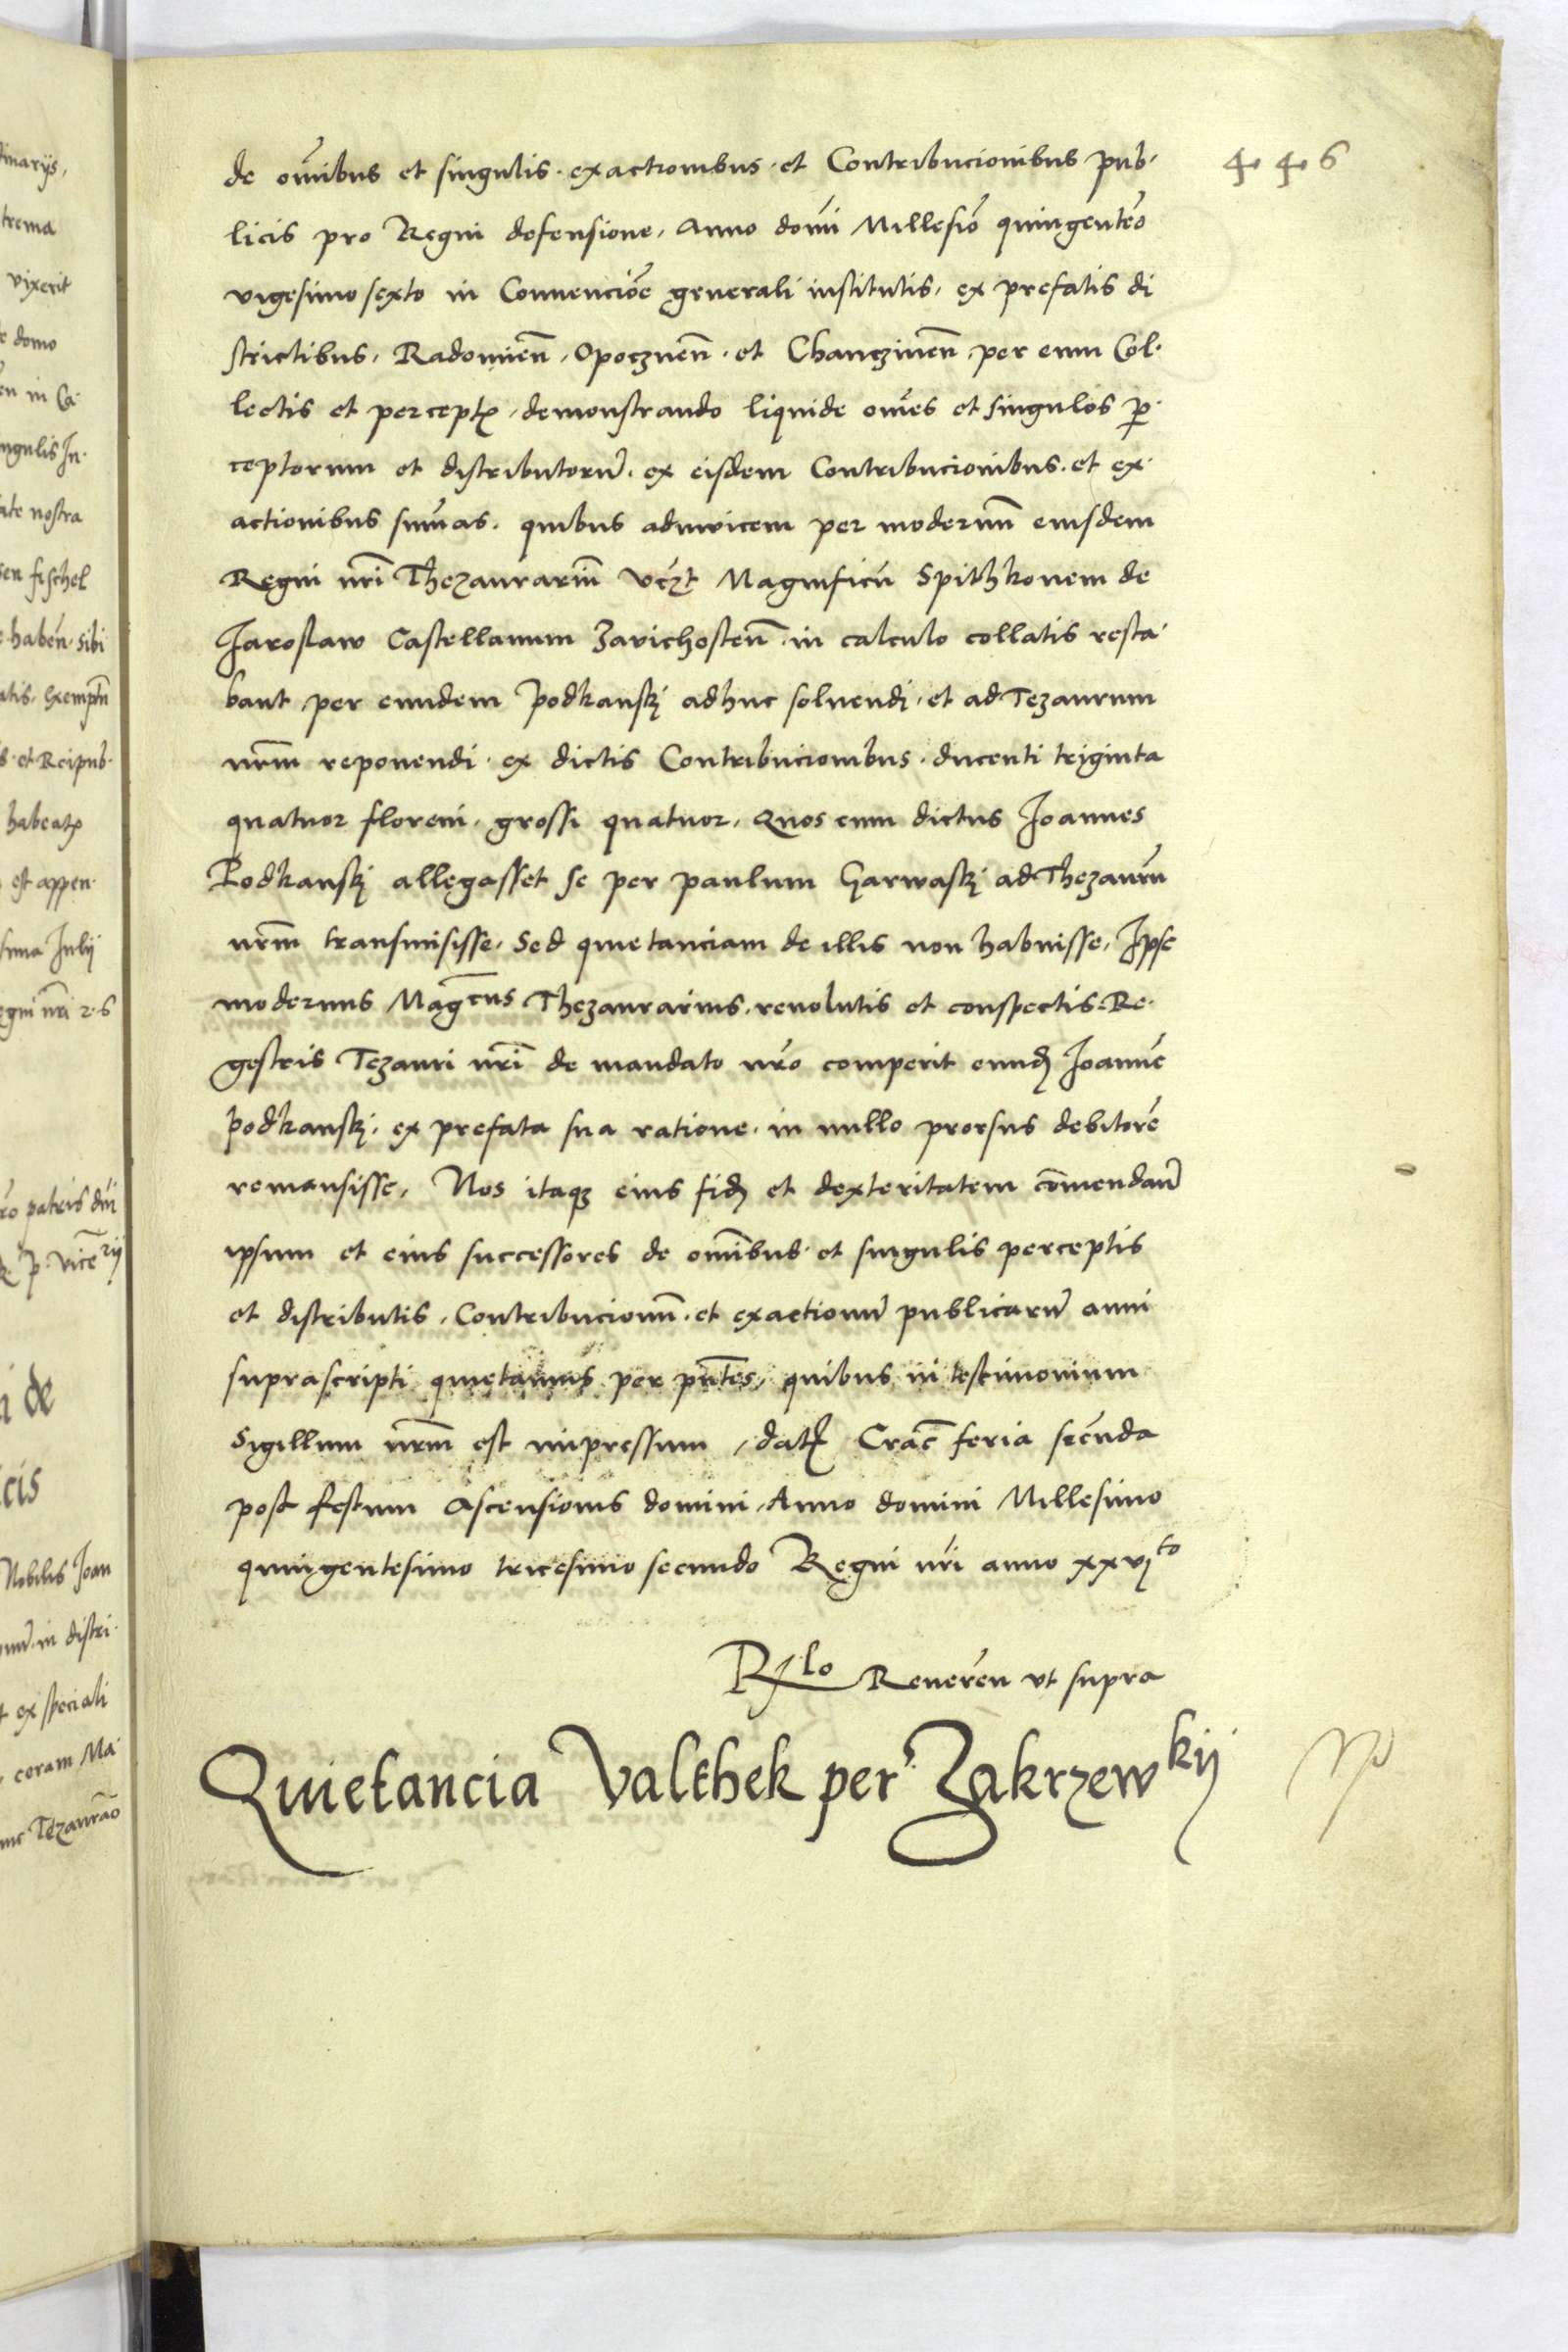 446
de om̄ibus et singulis exactionibus et Contribucionibus pub-
licis pro Regni defensione, Anno domi Millesio quingenteo
vigesimo sexto in Convencioē generali institutis, ex prefatis di
strictibus, Radomien̄, Opocznen̄ et Chanczinen̄ per eum Col-
lectis et perceptis, demonstrando liquide om̄es et singulos per-
ceptorum et distributoru᷑ ex eisdem Contribucionibus et ex-
actionibus sum̄as, quibus adinvicem per modernu̅ eiusdem
Regni nr̄i Thezaurariu̅ vczt Magnificu̅ Spithkonem de
Jaroslaw Castellanum Zavichosten̄ in calculo collatis resta-
bant per eundem podkanskj adhuc solvendj et ad Tezaurum
nrm̄ reponendi ex dictis Contribucionibus ducenti triginta
quatuor floreni, grossi quatuor, Quos cum dictus Joannes
Podkanskj allegasset se per paulum Garwaskj ad Thezauru̅
nrm̄ transmisisse, Sed quietanciam de illis non habuisse, Ipse
modernus Mag̅cus Thezaurarius, revolutis et conspectis Re-
gestris Tezauri nr̄i de mandato nr̄o comperit eund̄ Joanne̅
podkanskj ex prefata sua ratione in nullo prorsus debitore̅
remansisse, Nos itaq̄ eius fid̄ et dexteritatem com̄endan̄
ipsum et eius successores de om̄ibus et singulis perceptis
et distributis, Contribucionu̅ et exactionu̅ publicaru̅ anni
suprascripti quietamus per pn̄tes, quibus in testimonium
Sigillum nrm̄ est impressum, dat̄ Crac̄ feria secūda
post festum Ascensionis domini, Anno domini Millesimo
quingentesimo tricesimo secundo Regni nr̄i anno xxvjto
Rlo Reveren̄ vt supra
Quietancia Valthek per Zakrzewkij